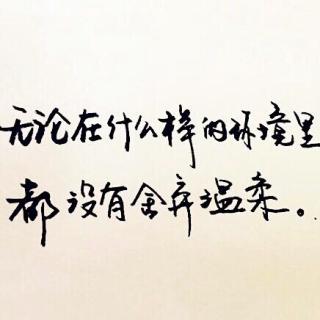 无论在什么样的环境里
都没有舍弃温柔。